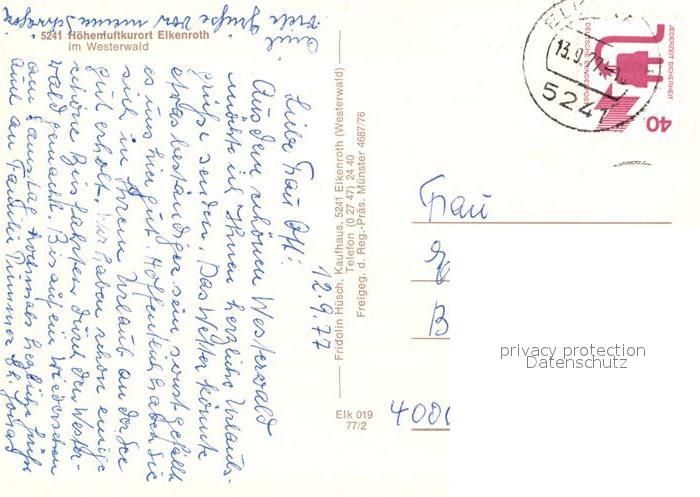 5241 Höhenluftkurort Elkenroth
im Westerwald
12.9.77
Liebe Frau Ott!
Aus dem schönen Westerwald
möchte ich Ihnen herzliche Urlaubs-
grüße senden. Das Wetter könnte
etwas beständiger sein sonst gefällt
es uns hier gut. Hoffentlich haben Sie
sich in Ihrem Urlaub an der See
gut erholt. Wir haben schon einige
schöne Busfahrten durch den Wester-
wald gemacht. Bis auf ein Wiedersehen
am Samstag nochmals herzliche Grüße
auch an Familie
viele Grüße von meiner
Fridolin Hüsch, Kaufhaus, 5241 Elkenroth (Westerwald)
Telefon (0 27 47) 24 40
Freigeg. d. Reg.-Präs. Münster 4687/76
Elk 019
77/2
13.9.77
5241
JEDERZEIT SICHERHEIT
DEUTSCHE BUNDESPOST
40
Frau
B
400
privacy protection
Datenschutz